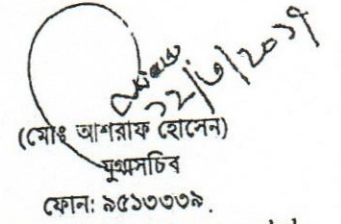 ২২/৬/২০১৭
(মোঃ আশরাফ হোসেন)
যুগ্মসচিব
ফোন: ৯৫১৩৩৩৯.